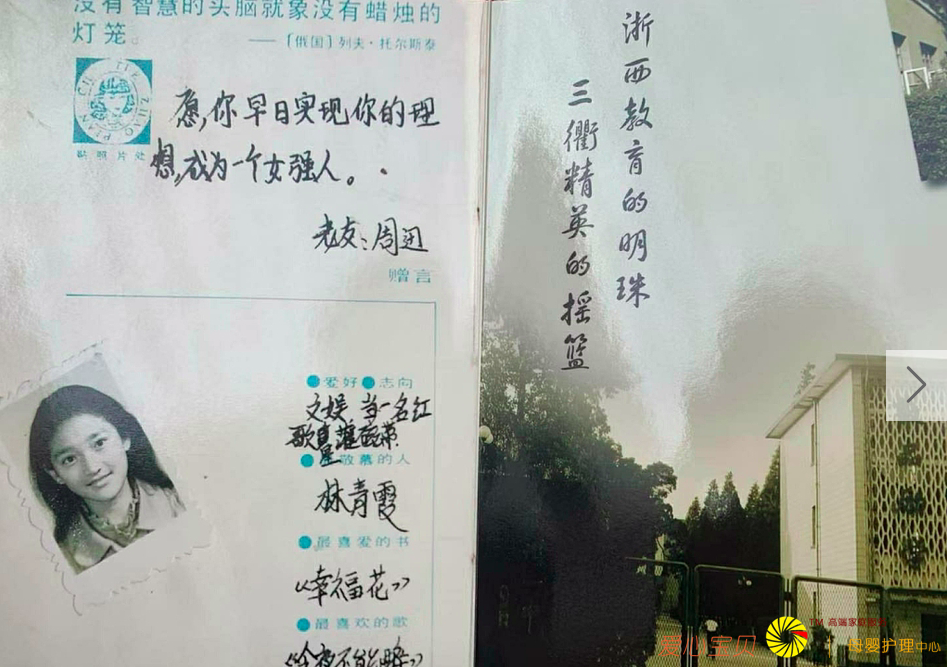 没有智慧的头脑就象没有蜡烛的
灯笼。
——〔俄国〕列夫·托尔斯泰
贴照片处
愿,你早日实现你的理
想,成为一个女强人。
老友:周迅
赠言
●爱好●志向
文娱 当一名红
歌
星
●敬慕的人
林青霞
●最喜爱的书
《幸福花》
●最喜欢的歌
浙西教育的明珠
三衢精英的摇篮
爱心宝贝
TM 高端家庭
母婴护理中心